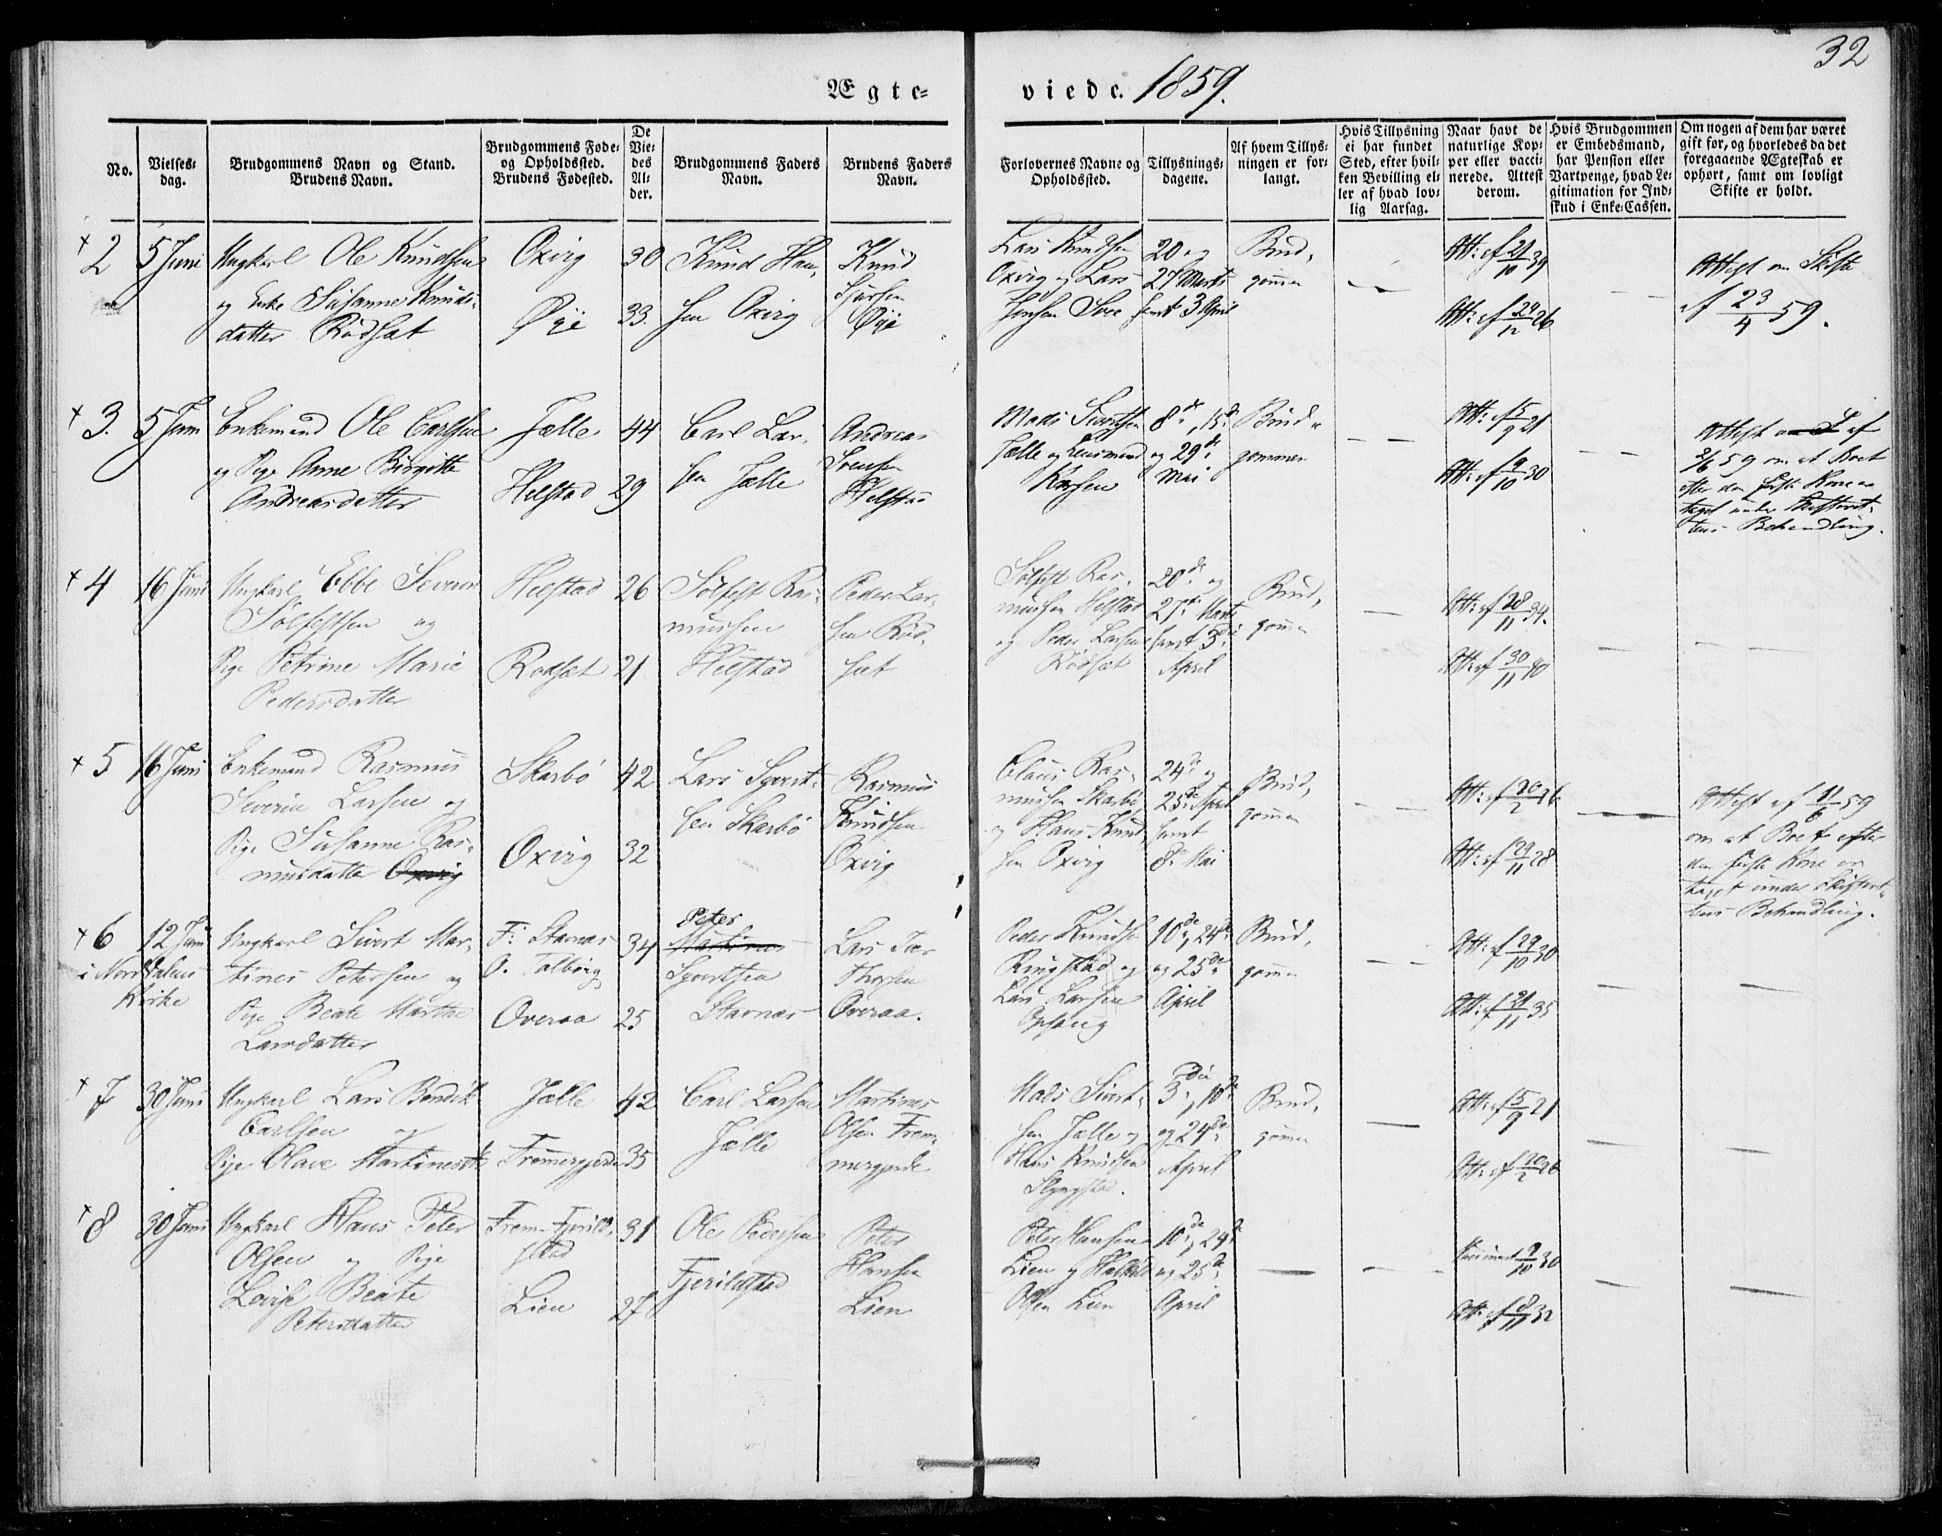 32
Ægte-
viede. 1859.
No.
Vielses-
dag.
Brudgommens Navn og Stand.
Brudens Navn.
Brudgommens Føde-
og Opholdssted.
Brudens Fødested.
De
Vie-
des
Al-
der.
Brudgommens Faders
Navn.
Brudens Faders
Navn.
Forlovernes Navne og
Opholdssted.
Tillysnings-
dagene.
Af hvem Tillys-
ningen er for-
langt.
Hvis Tillysning
ei har fundet
Sted, efter hvil-
ken Bevilling el-
ler af hvad lov-
lig Aarsag.
Naar havt de
naturlige Kop-
per eller vacci-
nerede. Attest
derom.
Hvis Brudgommen
er Embedsmand,
har Pension eller
Vartpenge, hvad Le-
gitimation for Ind-
skud i Enke-Cassen.
Om nogen af dem har været
gift før, og hvorledes da det
foregaaende Ægteskab er
ophørt, samt om lovligt
Skifte er holdt.
+ 2
5 Juni
Ungkarl Ole Knudsen
og Enke Susanne Knuds-
datter Rødsæt
Oxvig
Øye
30
33.
Knud Han-
sen Oxvig
Knud
Sjursen
Øye
Lars Knudsen
Oxvig og Lars
Jensen Sve
20 og
27 Marts
samt 3 April
Brud-
gommen
Att: af 21/10 39
Att: af 29/12 26
Attest om Skifte
af 23/4 59.
+ 3.
5 Juni
Enkemand Ole Carlsen
og Pige Anne Birgitte
Andreasdatter
Jælle
Helstad
44
29
Carl Lar-
sen Jælle
Andreas
Svensen
Helstad
Mads Sivertsen
Jælle og Lensmand
8de, 15de
og 29de
Mai
Brud-
gommen
Att: af 5/9 21
Att: af 9/10 30
Attest af
2/6 59 om at Boet
efter den første Kone er
taget under Skifteret-
tens Behandling.
+ 4
16 Juni
Ungkarl Ebbe Severin
Sølfestsen og
Pige Petrine Marie
Pedersdatter
Helstad
Rødsæt
26
21
Sølfest Ras-
mussen
Helstad
Peder Lar-
sen Rød-
sæt
Sølfest Ras-
mussen Helstad
og Peder Larsen
Rødsæt
20de og
27de Marts
samt 3die
April
Brud-
gommen
Att: af 28/11 34.
Att: af 30/11 40
+ 5
16 Juni
Enkemand Rasmus
Severin Larsen og
Pige Susanne Ras-
musdatter Oxvig
Skarbø
Oxvig
42
32
Lars Syvert-
sen Skarbø
Rasmus
Knudsen
Oxvig
Claus Ras-
mussen Skarbø
og Hans Knud-
sen Oxvig
24de og
25de April
samt
8de Mai
Brud-
gommen
Att: af 20/2 26
Att: af 29/11 28
Attest af 11/6 59
om at Boet efter
den første Kone er
taget under Skifteret-
tens Behandling.
+ 6
12 Juni
i Norddalens
Kirke
Ungkarl Sivert Mar-
tinus Petersen og
Pige Beate Marthe
Larsdatter
F: Stavnæs
O. Talberg
Overaa
34
25
Peter
Martinus
Syvertsen
Stavnæs
Lars Tor-
Overaa.
Peder Knudsen
Ringstad og
Lars Larsen
Ophaug
10de, 24de
og 25de
April
Brud-
gommen
Att: af 29/10 30
Att: af 21/11 35
+ 7
30 Juni
Ungkarl Lars Bendik
Carlsen og
Pige Olave Martinusdtr
Jælle
Fremmergjerde
42
35
Carl Larsen
Jælle
Martinus
Olsen Frem-
mergjerde
Mads Sivert-
sen Jælle og
Hans Knudsen
3die, 10de
og 24de
April
Brud-
gommen
Att: af 5/9 21
Att: af 20/2 26
+ 8
30 Juni
Ungkarl Hans Peter
Olsen og Pige
Lovise Beate
Petersdatter
Frem-Fjerild-
stad
Lien
31
27
Ole Pedersen
Fjerildstad
Peter
Hansen
Lien
Peter Hansen
Lien og
Olsen Lien
10de, 24de
og 25de
April
9/10 30
Att: af 8/11 32